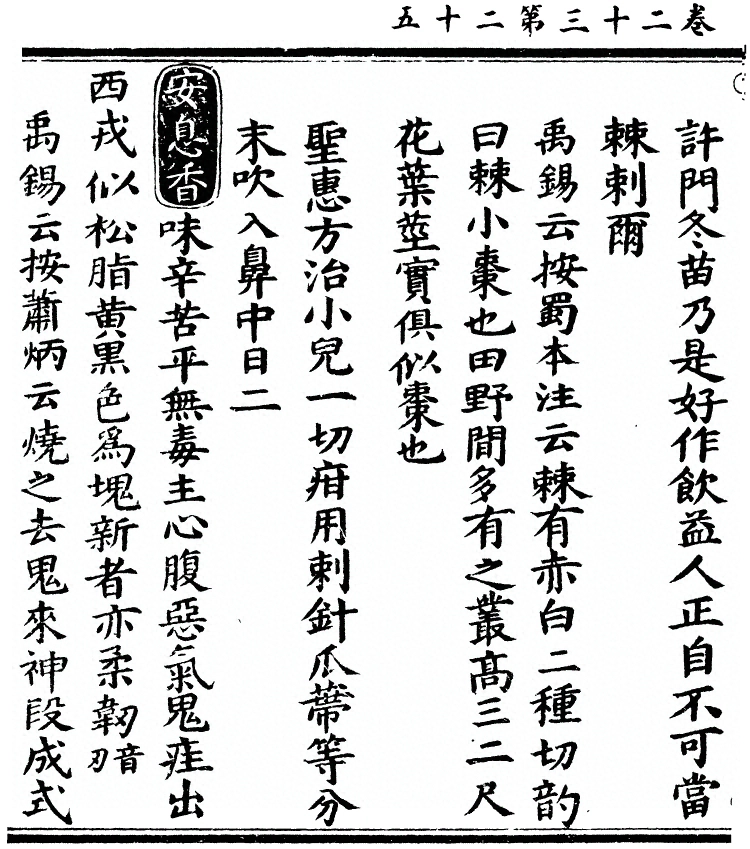 卷二十三第二十五
許門冬苗乃是好作飲益人正自不可當
棘刺爾
禹錫云按蜀本注云棘有赤白二種切韵
曰棘小棗也田野間多有之叢髙三二尺
花葉莖實俱似棗也
聖惠方治小兒一切疳用刺針瓜蔕等分
末吹入鼻中日二
安息香味辛苦平無毒主心腹惡氣鬼疰出
西戎似松脂黄黒色爲塊新者亦柔韌音刃
禹錫云按蕭炳云燒之去鬼來神段成式